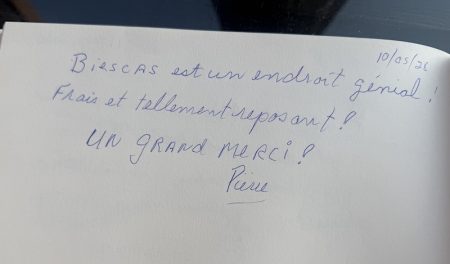 10/05/26
Biescas est un endroit génial !
Frais et tellement reposant !
UN GRAND MERCI !
Pierre